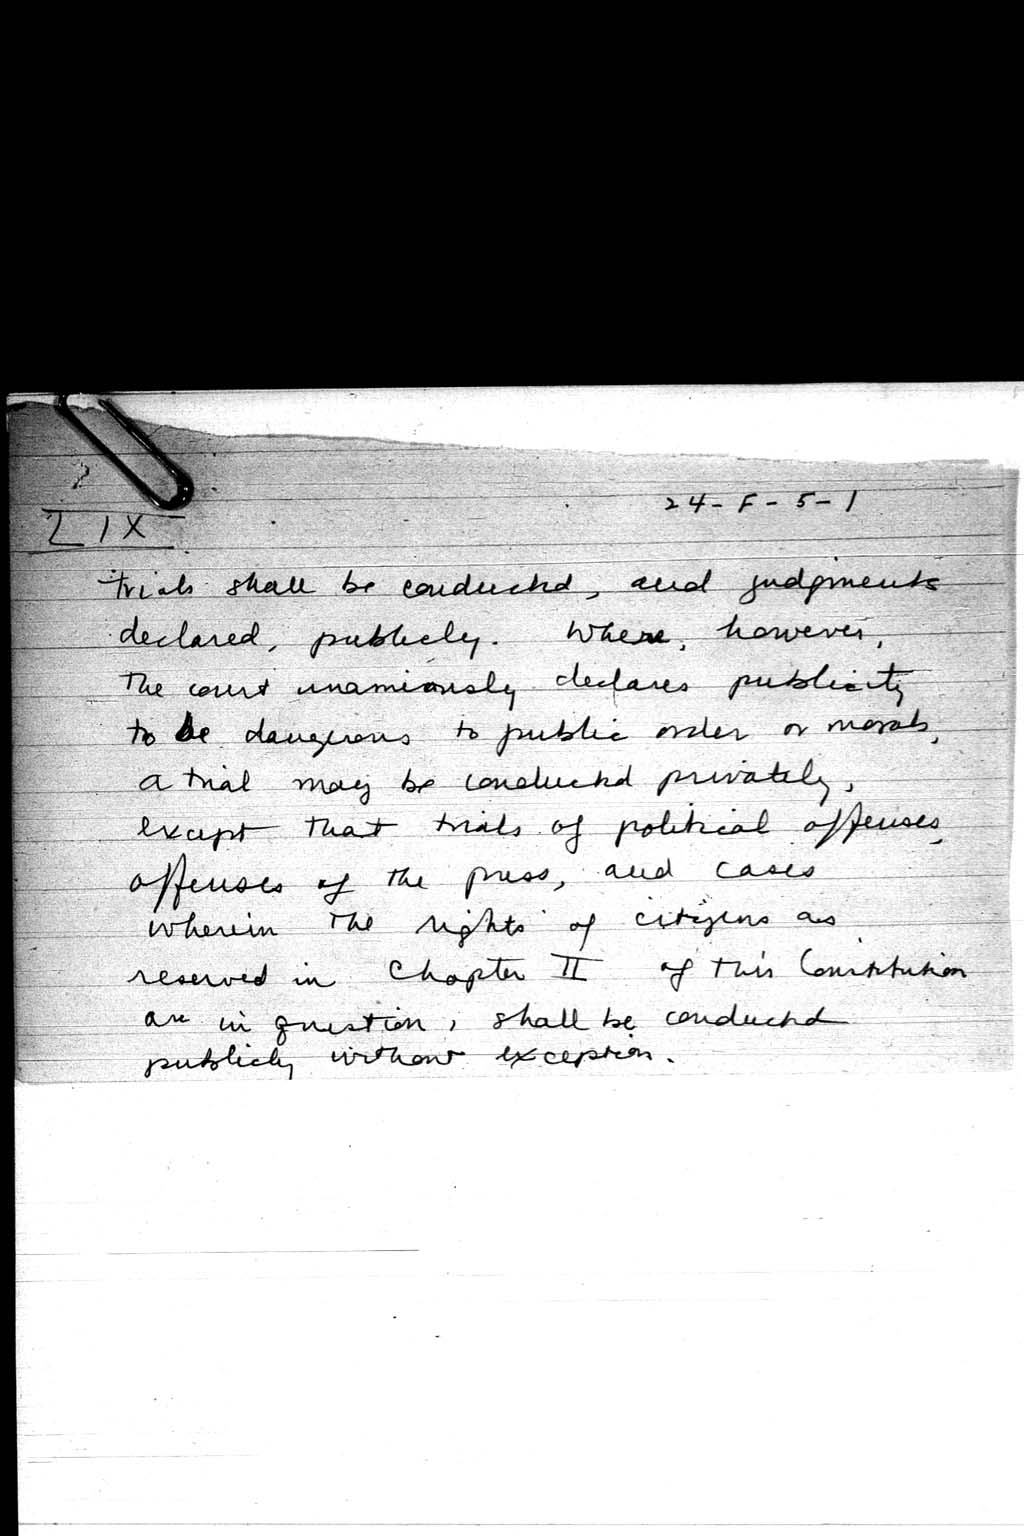 24-F-5-1
LIX
trials shall be conducted, and judgments
declared, publicly. Where, however,
the court unamiously declares publicity
to be dangerous to public order or morals,
a trial may be conducted privately,
except that trials of political offenses,
offenses of the press, and cases
wherein the rights of citizens as
reserved in Chapter II of this Constitution
are in question, shall be conducted
publicly without exception.